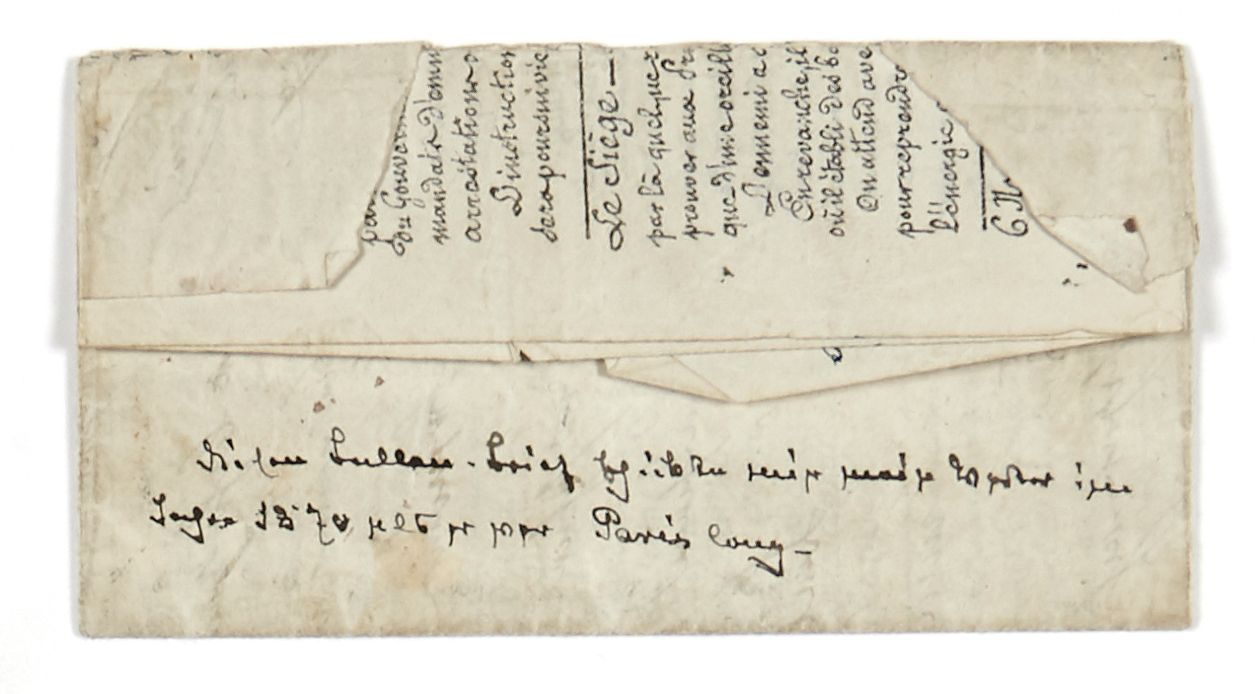 par
du Gouvern
mandait d'emm
arrestations
L'instruction
sera poursuivie
Le Siège —
par là quelques
prouver aux Pr
que d'une oreill
L'ennemi a
En revanche, il
où il établi des b
On attend ave
pour reprendr
l'énergie
Diesen Ballon-Brief schickte mir mein Vater im
Jahre 1870 als er vor Paris lag –